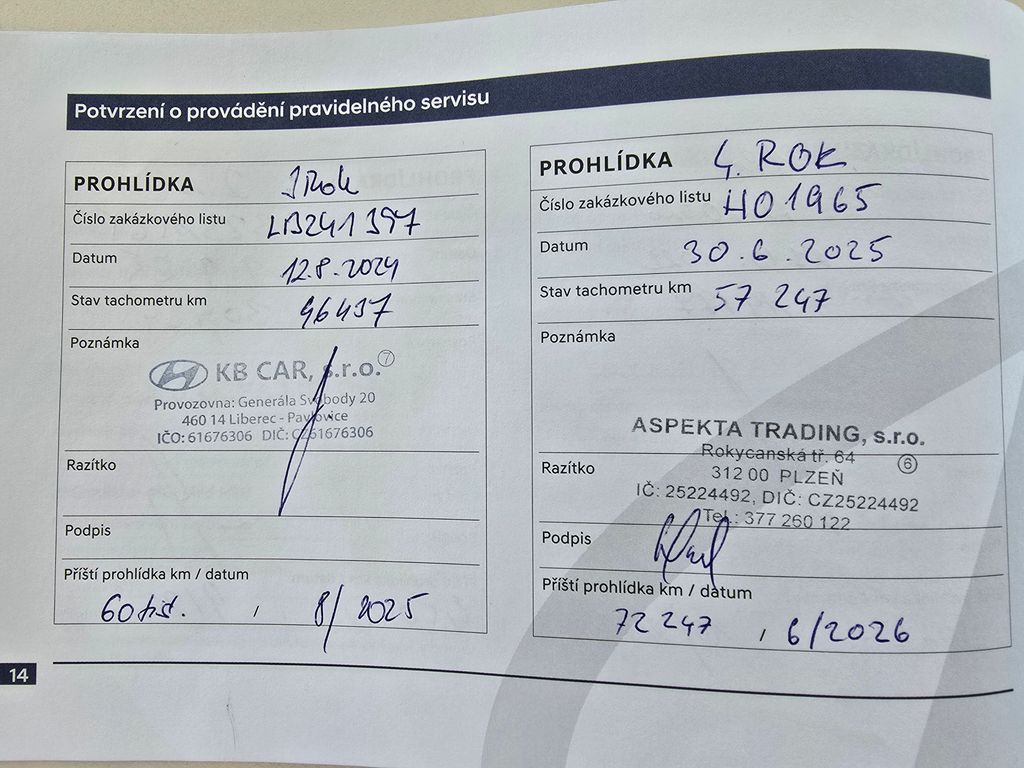 Potvrzení o provádění pravidelného servisu
PROHLÍDKA 3Rok
Číslo zakázkového listu LB241397
Datum 12.8.2024
Stav tachometru km 46437
Poznámka
KB CAR, s.r.o. 7
Provozovna: Generála Svobody 20
460 14 Liberec - Pavlovice
IČO: 61676306 DIČ: CZ61676306
Razítko
Podpis
Příští prohlídka km / datum
60tis. , 8/2025
PROHLÍDKA 4. ROK
Číslo zakázkového listu HO1965
Datum 30.6.2025
Stav tachometru km 57 247
Poznámka
ASPEKTA TRADING, s.r.o.
Rokycanská tř. 64 6
Razítko
312 00 PLZEŇ
IČ: 25224492, DIČ: CZ25224492
Tel.: 377 260 122
Podpis
Příští prohlídka km / datum
72 247 , 6/2026
14